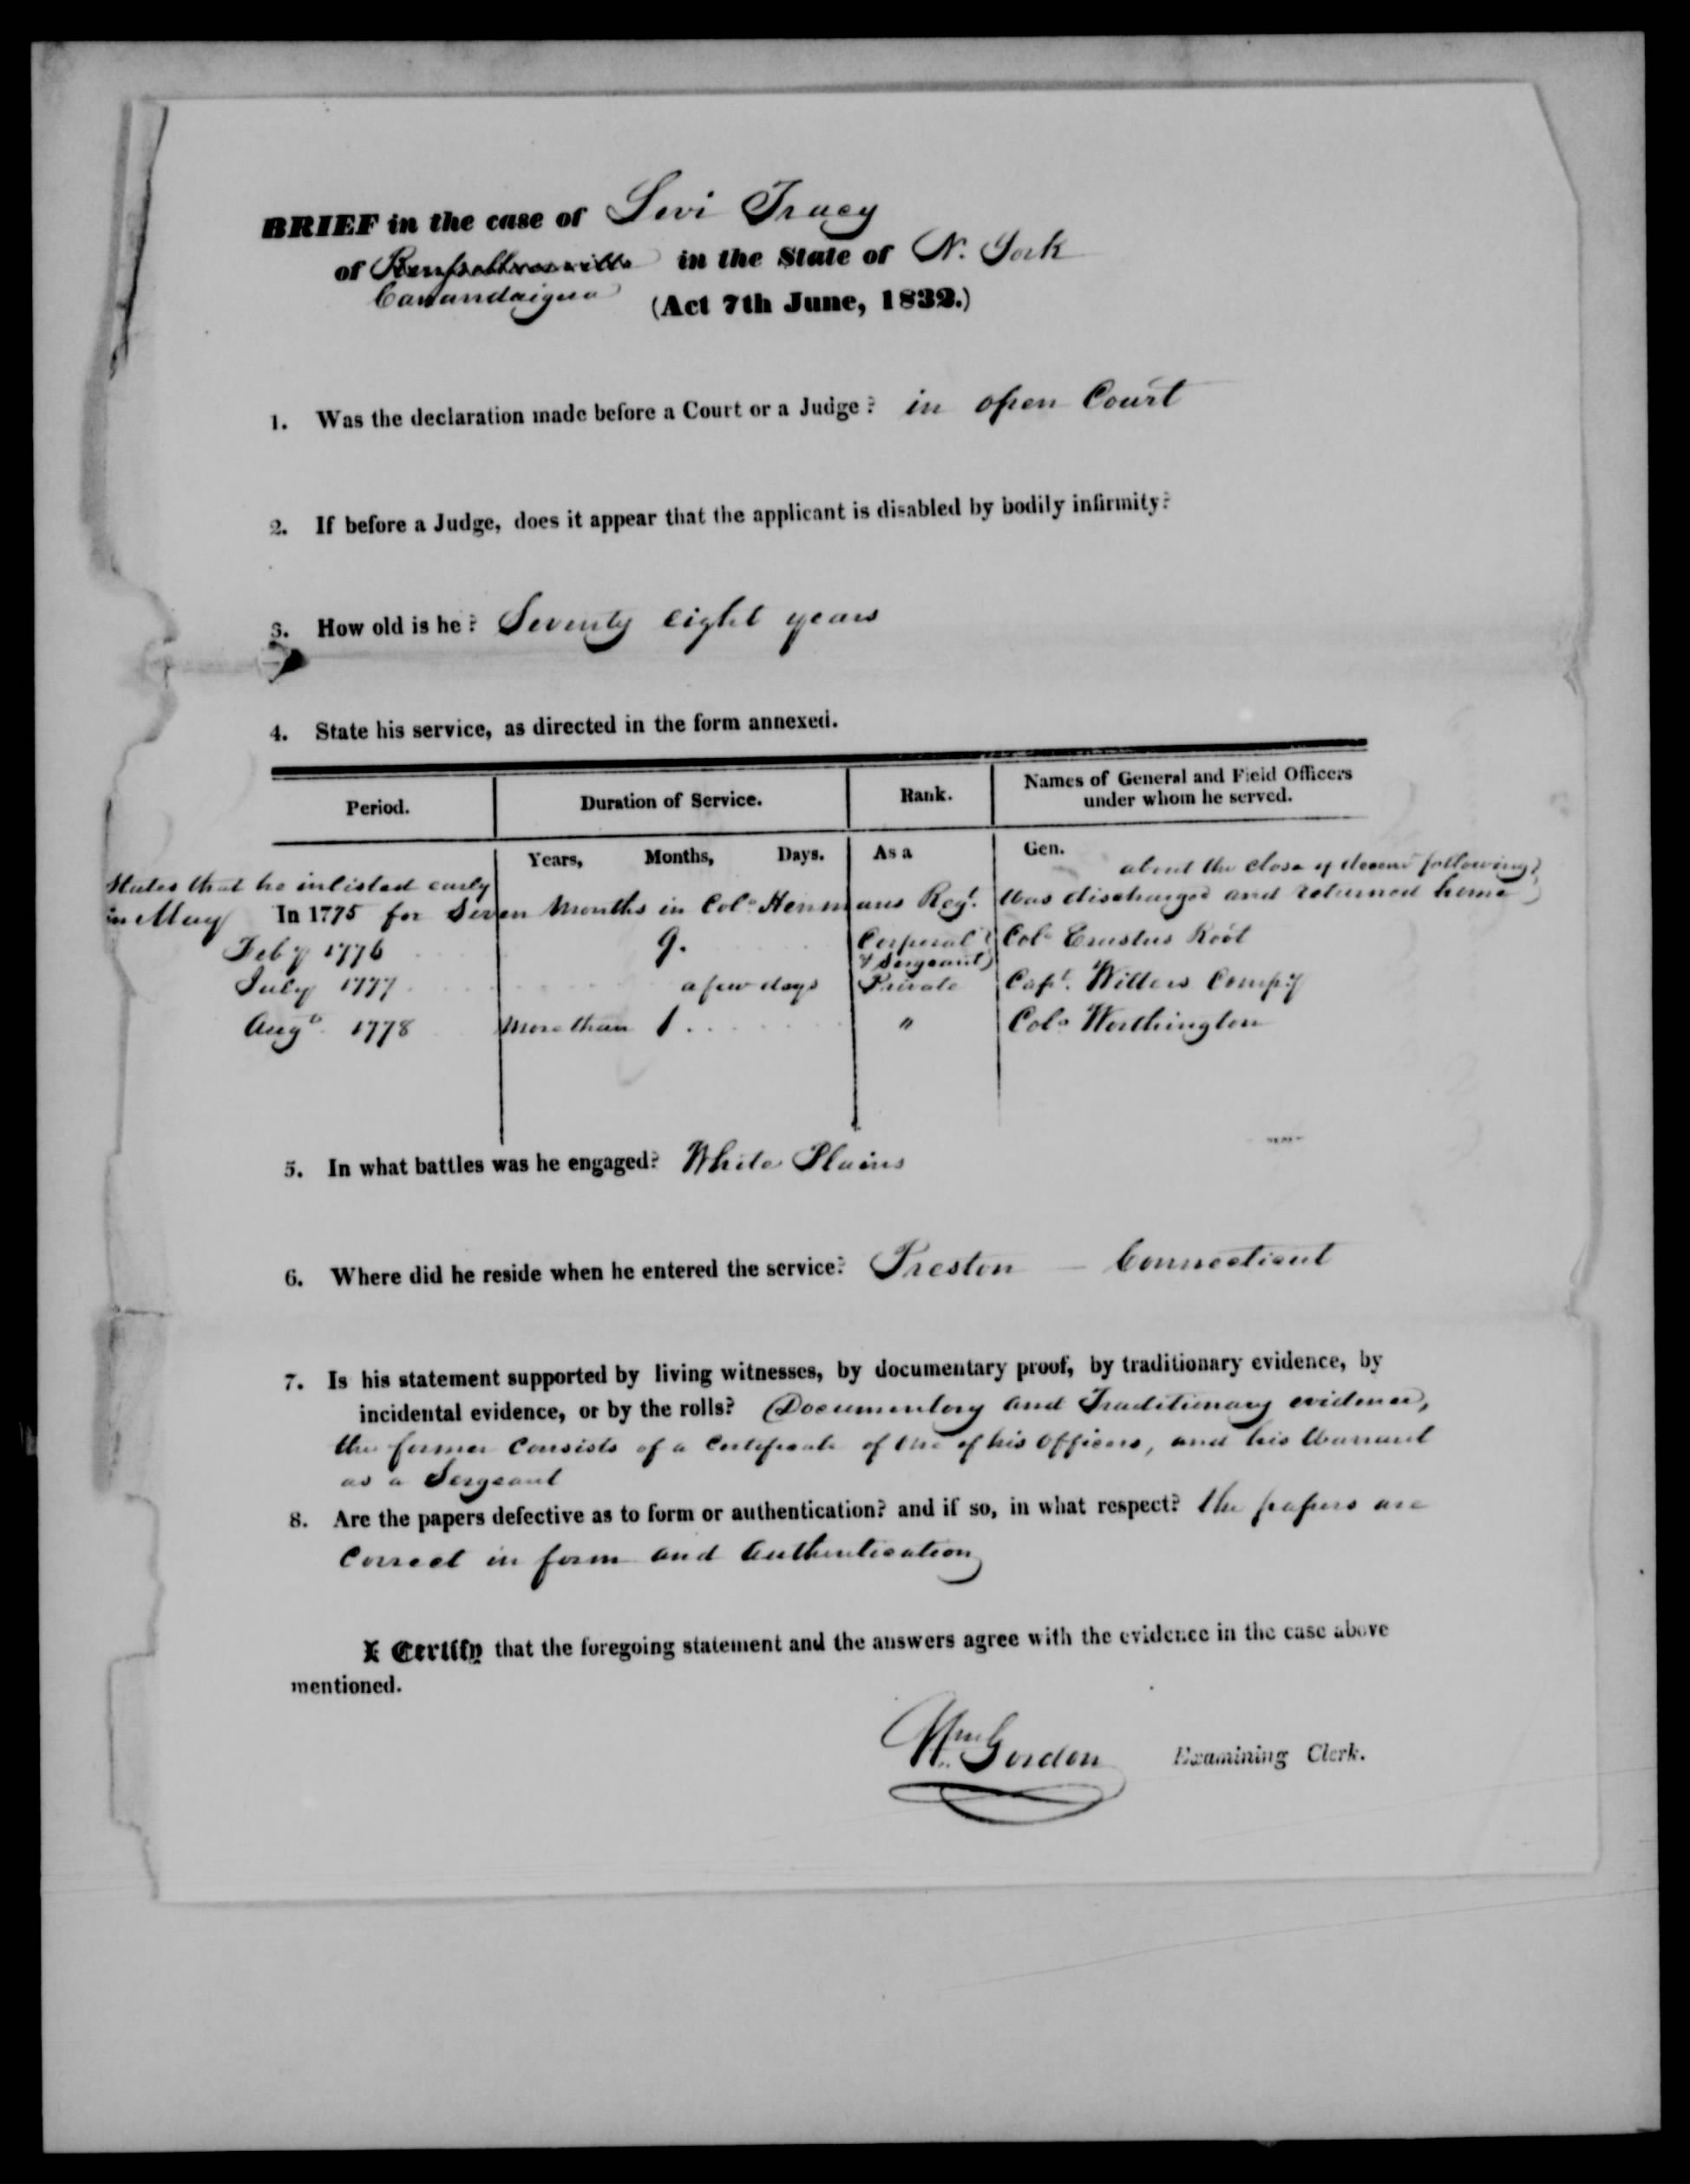 BRIEF in the case of Levi Tracy
of Rensselaerville in the State of N. York
Canandaigua (Act 7th June, 1832.)
1. Was the declaration made before a Court or a Judge? in open Court
2. If before a Judge, does it appear that the applicant is disabled by bodily infirmity?
3. How old is he? Seventy eight years
4. State his service, as directed in the form annexed.
Period. Duration of Service. Rank. Names of General and Field Officers
under whom he served.
Years, Months, Days. As a Gen.
about the close of Decemr following
States that he inlisted early
in May In 1775 for Seven Months in Colo Henmans Regt. Was discharged and returned home
Feby 1776 9. Corporal Colo Erastus Root
& Sergeant
July 1777 a few days Private Capt. Witters Compy
Augt 1778 More than 1 " Colo Worthington
5. In what battles was he engaged? White Plains
6. Where did he reside when he entered the service? Preston – Connecticut
7. Is his statement supported by living witnesses, by documentary proof, by traditionary evidence, by
incidental evidence, or by the rolls? Documentory and Traditionary evidence,
the former Consists of a Certificate of One of his Officers, and his Warrant
as a Sergeant
8. Are the papers defective as to form or authentication? and if so, in what respect? the papers are
Correct in form and Authentication
I Certify that the foregoing statement and the answers agree with the evidence in the case above
mentioned.
Wm Gordon Examining Clerk.